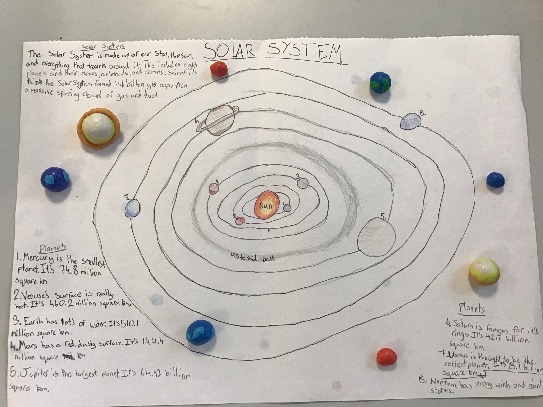 SOLAR SYSTEM
Solar System
The Solar System is made up of our star, the sun,
and everything that travels around it. This includes eight
planets and their moons, asteroids, and comets. Scientists
think the Solar System formed billion years ago from
a massive spinning cloud of gas and dust
Sun
asteroid belt
5
8
Planets
1. Mercury is the smallest
planet. It's 74.8 million
square km
2. Venuse's surface is really
hot. It's 460.2 million square km
3. Earth has lots of water. It's 510.1
million square km.
4. Mars has a red, dusty surface. It's 144.4
million square km
5. Jupiter is the largest planet. It's 61.42 billion
square km.
Planets
6. Saturn is famous for its
rings. It's 42.7 billion
square km.
7. Uranus is thought to be the
coldest planet. It's 8.1 billion
square km
8. Neptune has strong winds and
storms.